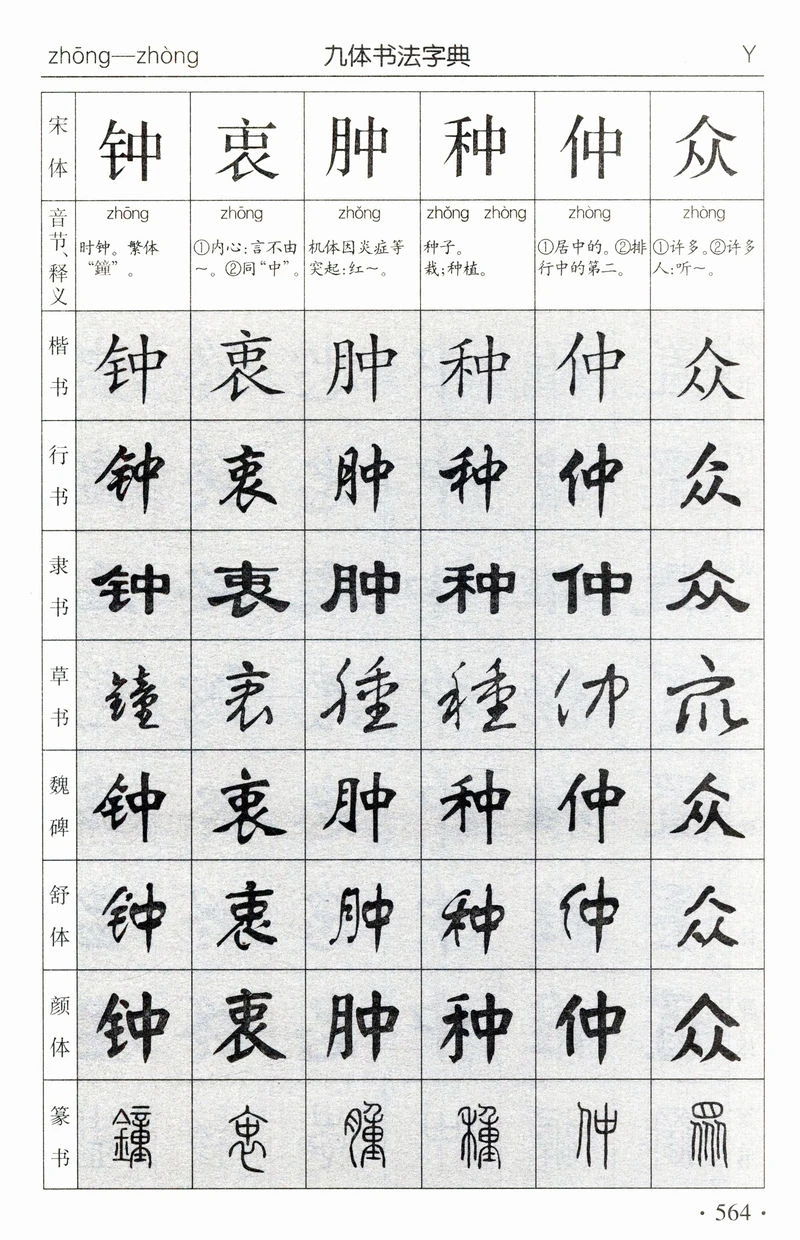 zhōng—zhòng 九体书法字典 Y
宋体 钟 衷 肿 种 仲 众
音节、释义 zhōng zhōng zhǒng zhǒng zhòng zhòng zhòng
时钟。繁体 ①内心:言不由 机体因炎症等 种子。 ①居中的。②排 ①许多。②许多
“鐘”。 ～。②同“中”。 突起:红～。 栽;种植。 行中的第二。 人:听～。
楷书 钟 衷 肿 种 仲 众
行书 钟 衷 肿 种 仲 众
隶书 钟 衷 肿 种 仲 众
草书 鐘 衷 腫 種 仲 众
魏碑 钟 衷 肿 种 仲 众
舒体 钟 衷 肿 种 仲 众
颜体 钟 衷 肿 种 仲 众
篆书 鐘 衷 腫 種 仲 眾
·564·